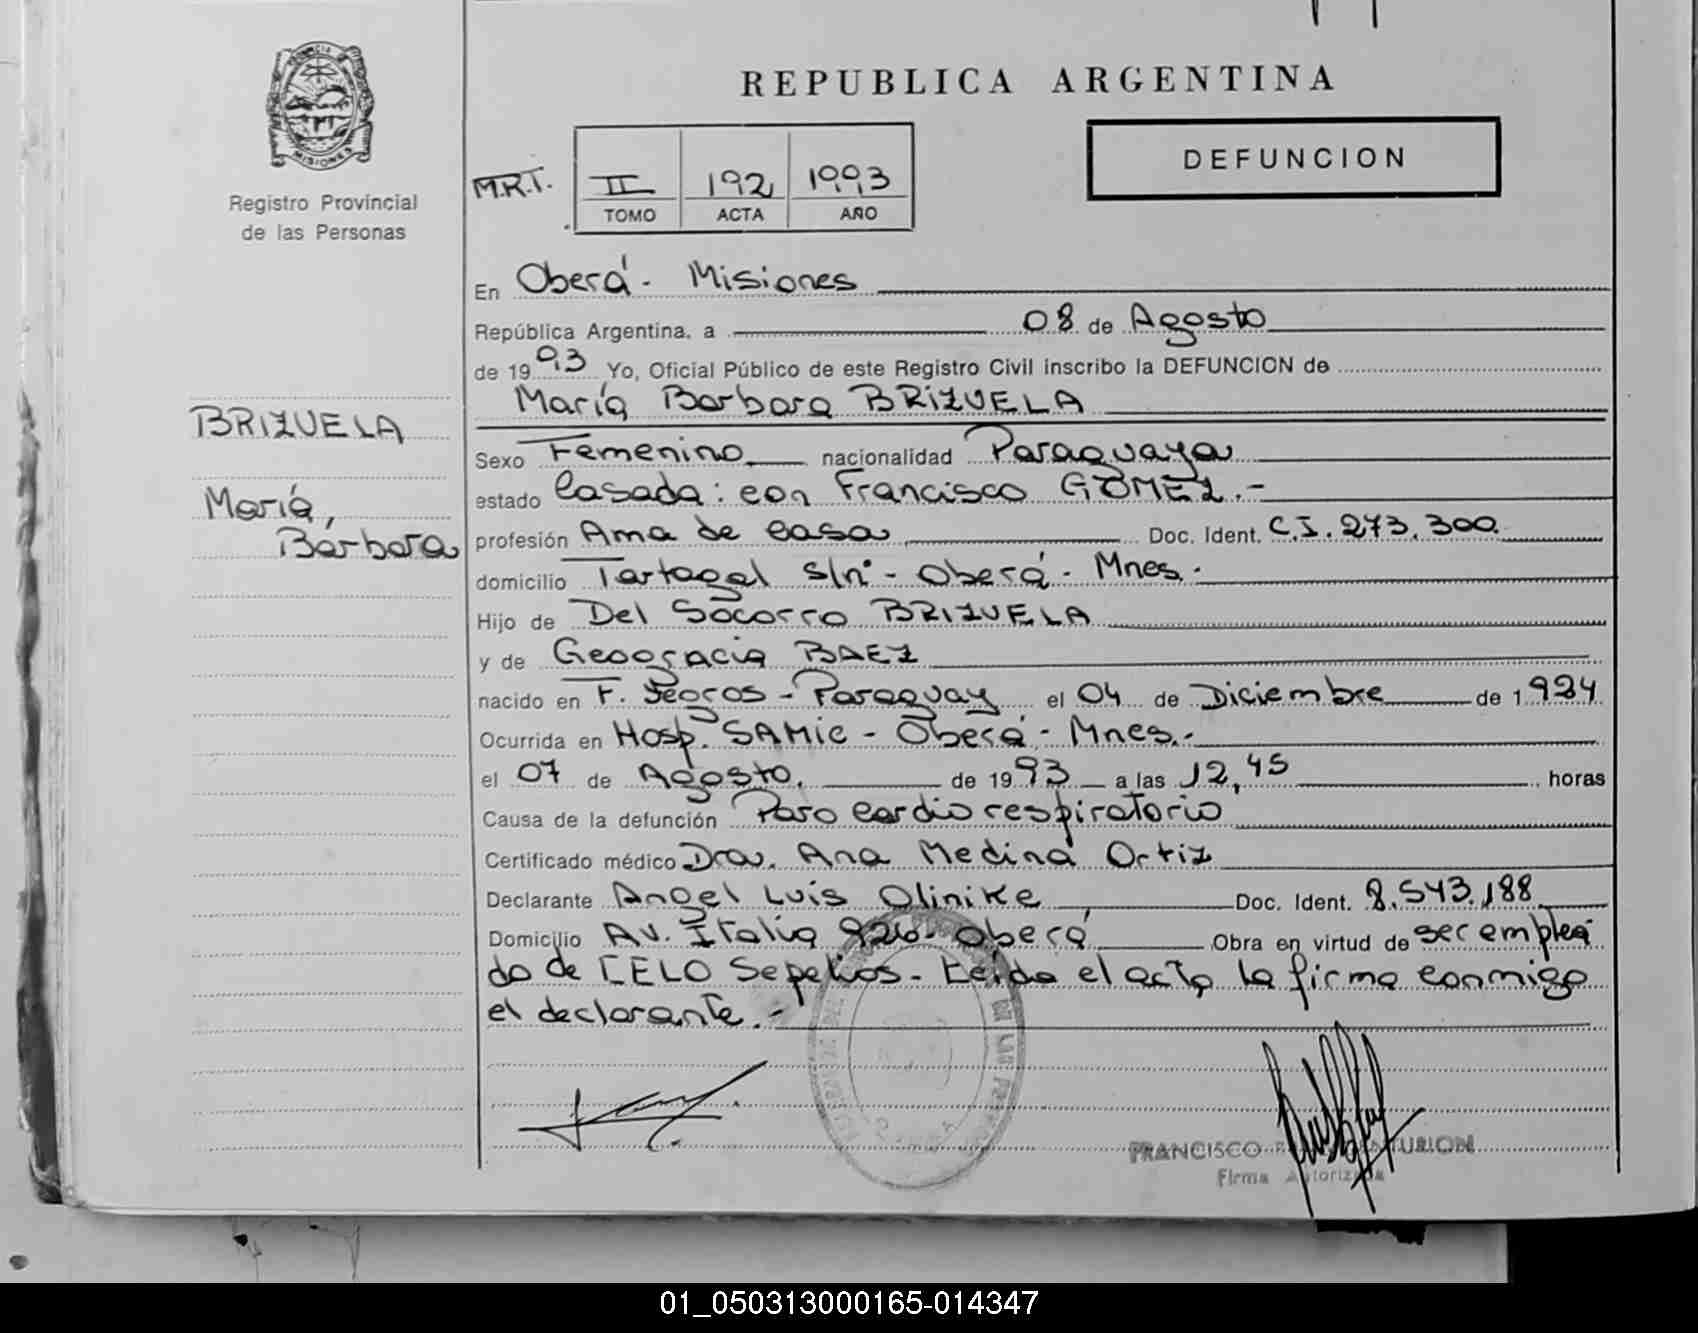 PROVINCIA DE
MISIONES
Registro Provincial
de las Personas
BRIZUELA
María,
Barbara
REPUBLICA ARGENTINA
DEFUNCION
M.R.T.
II 192 1993
TOMO ACTA AÑO
En Oberá - Misiones
República Argentina, a 08 de Agosto
de 1993 Yo, Oficial Público de este Registro Civil inscribo la DEFUNCION de
María Barbara BRIZUELA
Sexo Femenino nacionalidad Paraguaya
estado Casada: con Francisco GÓMEZ.-
profesión Ama de casa Doc. Ident. C.I. 273.300
domicilio Tartagal s/nº - Oberá - Mnes.
Hijo de Del Socorro BRIZUELA
y de Geogracia BAEZ
nacido en F. Yegros - Paraguay el 04 de Diciembre de 1924
Ocurrida en Hosp. SAMIC - Oberá - Mnes.-
el 07 de Agosto, de 1993 a las 12,45 horas
Causa de la defunción Paro cardio respiratorio
Certificado médico Dra. Ana Medina Ortiz
Declarante Angel Luis Olinike Doc. Ident. 8.543.188
Domicilio Av. Italia 926 - Oberá Obra en virtud de ser emplea
do de CELO Sepelios - Leída el acta la firma conmigo
el declarante.-
FRANCISCO
Firma Autorizada
01_050313000165-014347